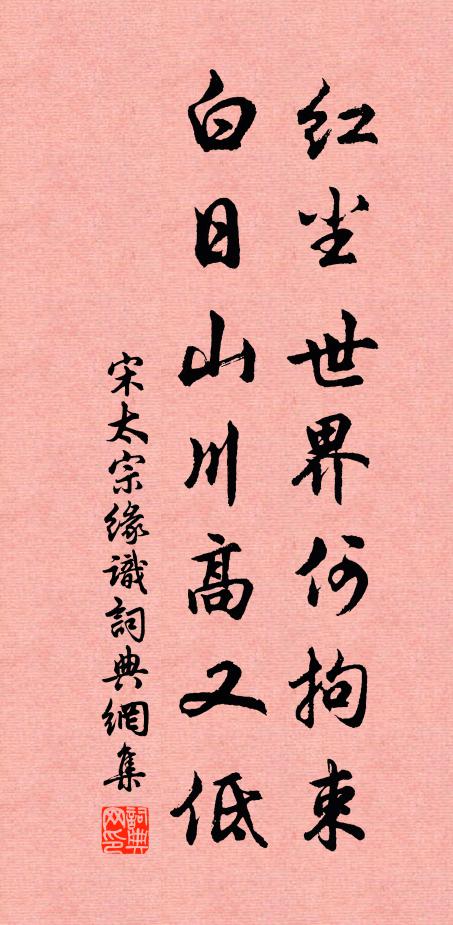 红尘世界何拘束
白日山川高又低
宋太宗缘識詞典網集
詞典网印